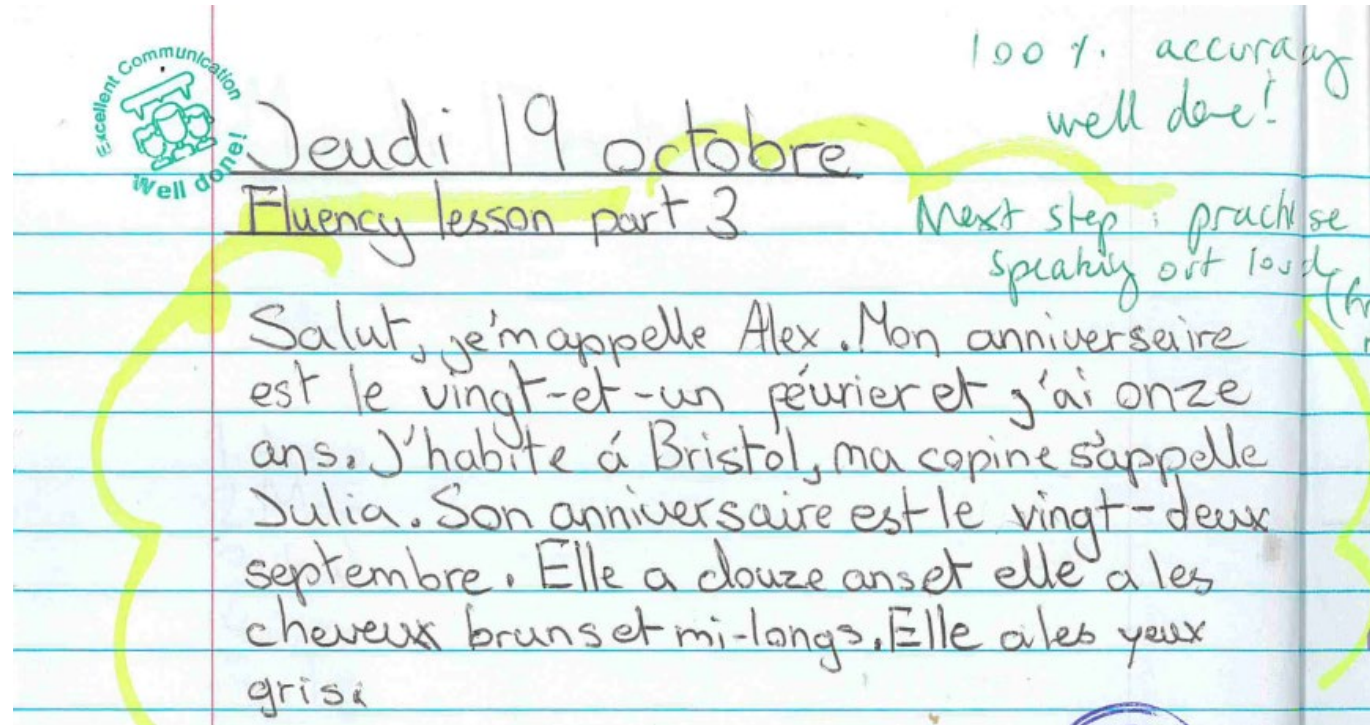 Excellent Communication
Well done!
100 %. accuracy
well done!
Jeudi 19 octobre
Fluency lesson part 3
Next step : practise
speaking out loud
Salut, je'mappelle Alex. Mon anniverseire
est le vingt-et-un péurier et j'ai onze
ans. J'habite á Bristol, ma copine s'appelle
Julia. Son anniversaire est le vingt-deux
septembre. Elle a douze ans et elle a les
cheveux bruns et mi-longs. Elle a les yeux
gris.